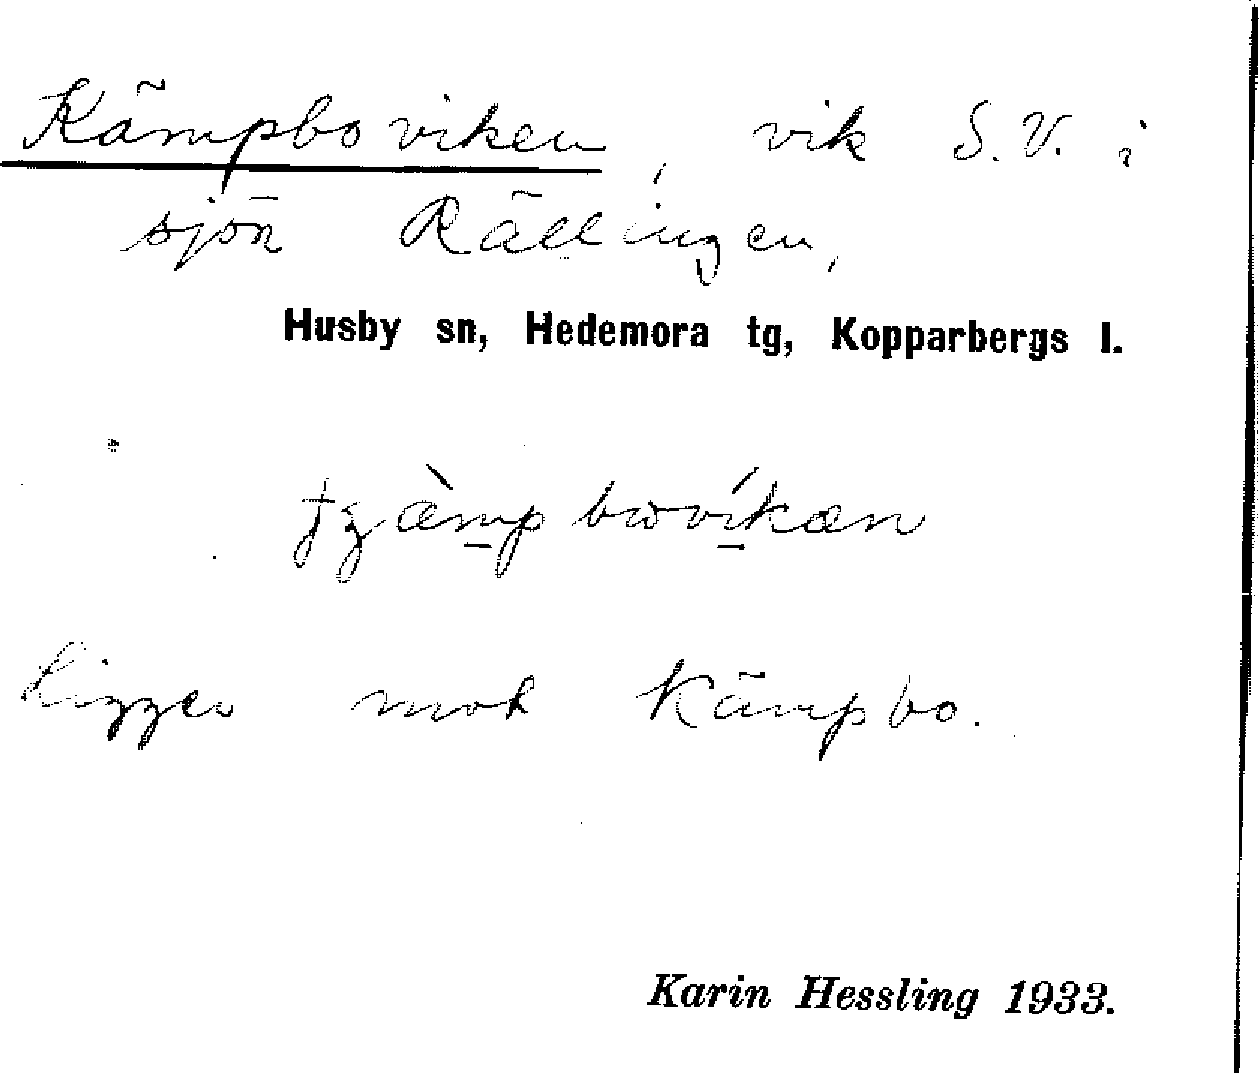 Kämpboviken, vik S.V. i
sjön Rällingen,
Husby sn, Hedemora tg, Kopparbergs l.
Ligger mot Kämpbo.
Karin Hessling 1933.